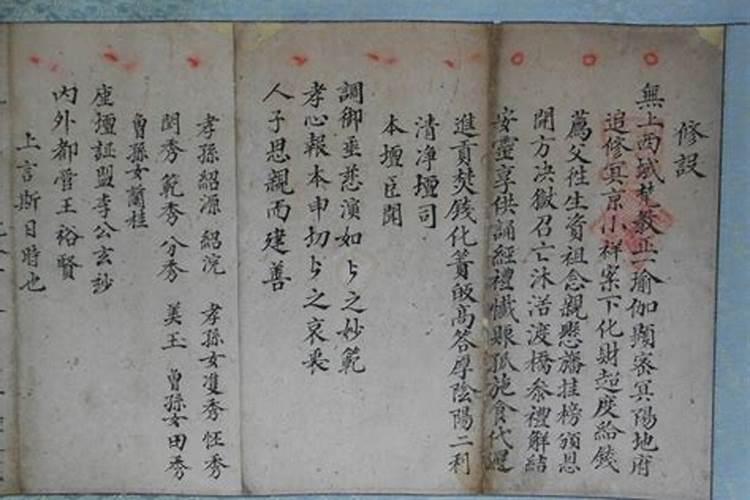 修設
無上西域梵教正一瑜伽顯密冥陽地府
追修冥京小祥案下化財超度給錢
薦父徃生資祖念親懸旛挂榜頒恩
開方决獄召亡沐浴渡橋叅禮解結
安靈享供誦經禮懺賑孤施食代還
進貢焚錢化筭皈髙答厚陰陽二利
清净壇司
本壇臣聞
調御垂慈演如之妙範
孝心報本申切之哀
人子思親而建善
孝孫紹源 紹浣 孝孫女雙秀 怔秀
閏秀 範秀 分秀 美玉 曾孫女田秀
曾孫女蘭桂
座壇証盟李公玄妙
内外都管王裕賢
上言斯日時也